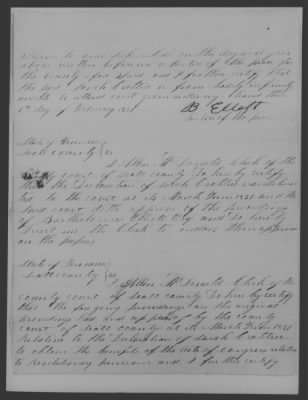 Sworn to and subscribed on the day and year
above written before me a Justice of the peace for
the county afore said and I further certify that
the said Sarah Crabtree is from bodily infirmity
unable to attend court given under my hand this
4th day of February 1851
B Elliott
Justice of the peace
State of Tennessee
Scott County
I Allen McDonald Clerk of the
county court of Scott county Do hereby certify
that the Declaration of Sarah Crabtree was
to the court at its March Term 1851 and the
said court of the proceedings
of Bartholomew Elliott Esq and Do hereby
Direct me the Clerk to endorse their approval
on the papers
State of Tennessee
Scott County
I Allen McDonald Clerk of the
county court of Scott county Do hereby certify
that the foregoing proceedings are the original
proceedings had and approved by the county
court of Scott county at its March Term 1851
Relative to the Declaration of Sarah Crabtree
to obtain the benefits of the acts of congress relative
to Revolutionary pensions and I further certify